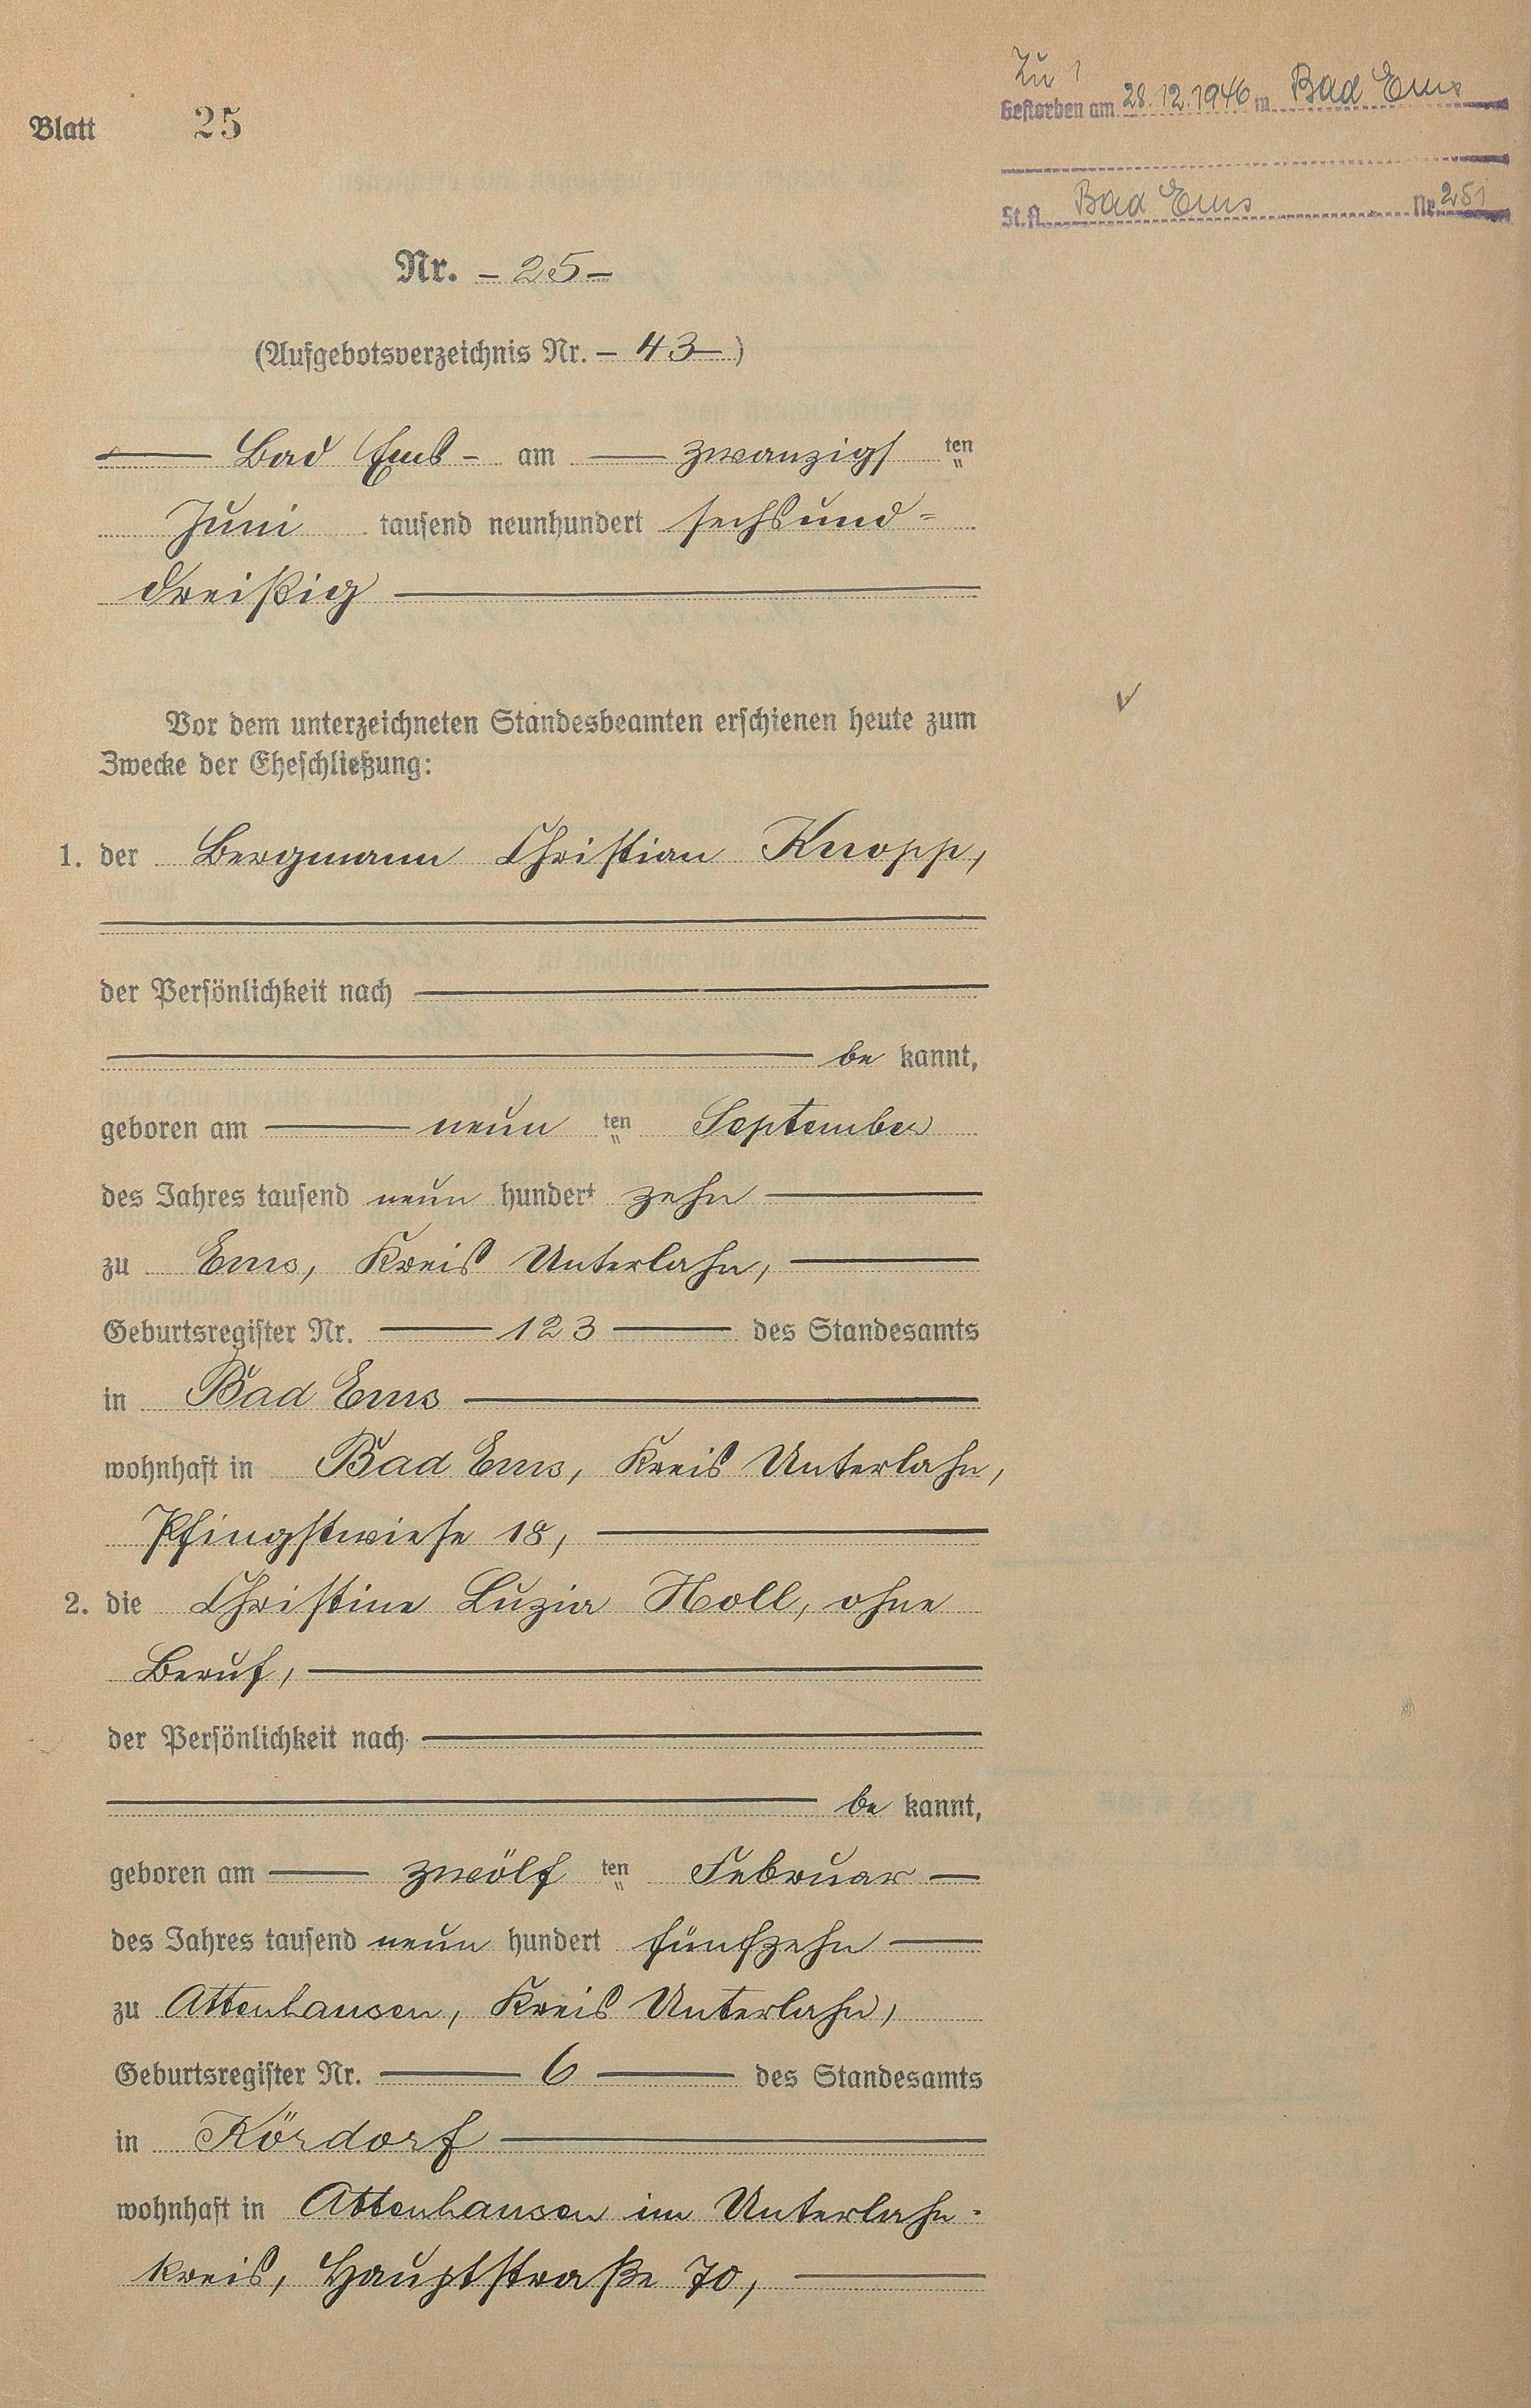 Blatt 25
Zu 1
Gestorben am 28.12.1946 in Bad Ems
St.A. Bad Ems Nr. 251
Nr. - 25 -
(Aufgebotsverzeichnis Nr. - 43 -)
Bad Ems - am zwanzigsten
Juni tausend neunhundert sechsund=
dreißig
Vor dem unterzeichneten Standesbeamten erschienen heute zum
Zwecke der Eheschließung:
1. der Bergmann Christian Knopp,
der Persönlichkeit nach
be kannt,
geboren am neun ten September
des Jahres tausend neun hundert zehn
zu Ems, Kreis Unterlahn,
Geburtsregister Nr. 123 des Standesamts
in Bad Ems
wohnhaft in Bad Ems, Kreis Unterlahn,
Pfingstwiese 18,
2. die Christine Luzia Noll, ohne
Beruf,
der Persönlichkeit nach
be kannt,
geboren am zwölf ten Februar
des Jahres tausend neun hundert fünfzehn
zu Attenhausen, Kreis Unterlahn,
Geburtsregister Nr. 6 des Standesamts
in Kördorf
wohnhaft in Attenhausen im Unterlahn-
kreis, Hauptstraße 70,